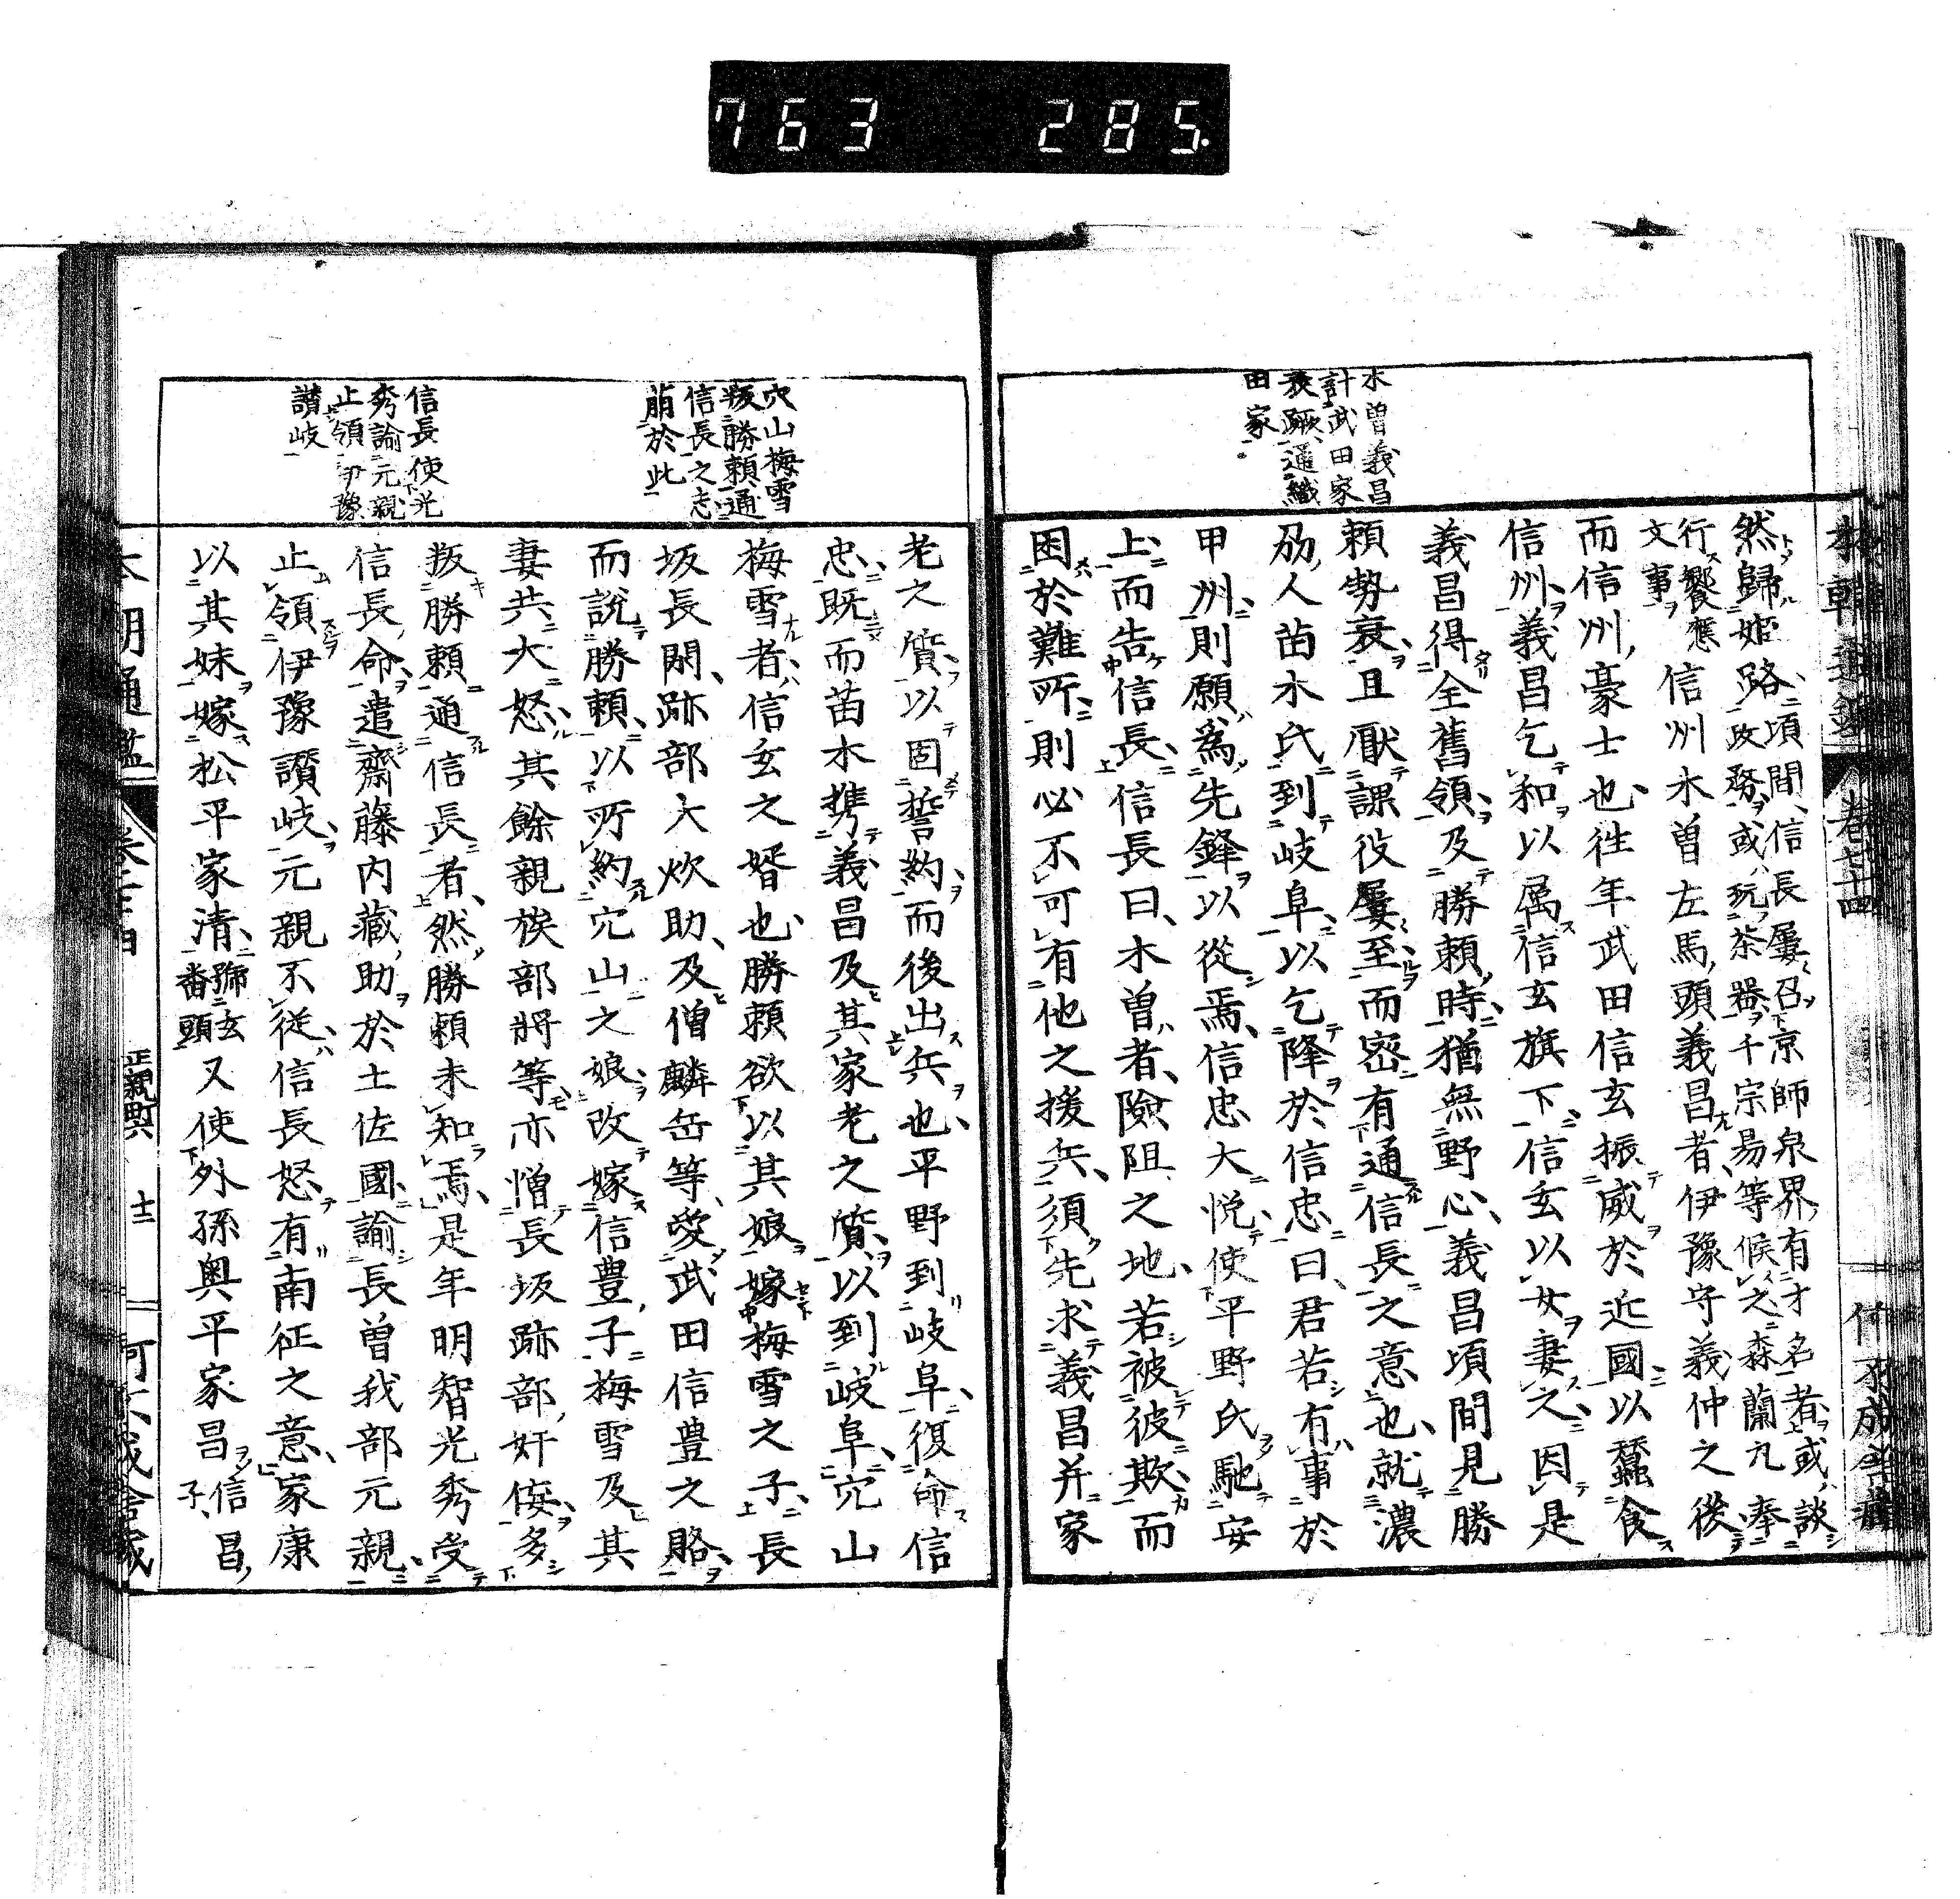 763 285.
木曽義昌
計武田家
衰蹶通織
田家
本朝通鑑 卷七十四
然歸姫路頃間信長屢召京師泉界有才名者或談
政務或玩茶器千宗易等候之森蘭丸奉
行饗應
文事信州木曽左馬頭義昌者伊豫守義仲之後
而信州豪士也徃年武田信玄振威於近國以蠶食
信州義昌乞和以属信玄旗下信玄以女妻之因是
義昌得全舊領及勝頼時猶無野心義昌頃間見勝
頼勢衰且厭課役屢至而密有通信長之意也就濃
刕人苗木氏到岐阜以乞降於信忠曰君若有事於
甲州則願為先鋒以從焉信忠大悦使平野氏馳安
土而告信長信長曰木曽者險阻之地若被彼欺而
困於難所則必不可有他之援兵須先求義昌并家
穴山梅雪
叛勝頼通
信長之志
萠於此
信長使光
秀諭元親
止領伊豫
讃岐
老之質以固誓約而後出兵也平野到岐阜復命信
忠既而苗木携義昌及其家老之質以到岐阜穴山
梅雪者信玄之婿也勝頼欲以其娘嫁梅雪之子長
坂長閑跡部大炊助及僧麟岳等愛武田信豊之賂
而説勝頼以所約穴山之娘改嫁信豊子梅雪及其
妻共大怒其餘親族部將等亦憎長坂跡部奸佞多
叛勝頼通信長者然勝頼未知焉是年明智光秀受
信長命遣齋藤内藏助於土佐國諭長曽我部元親
止領伊豫讃岐元親不從信長怒有南征之意家康
以其妹嫁松平家清號玄
番頭又使外孫奥平家昌信昌
子
本朝通鑑 正親町 十二